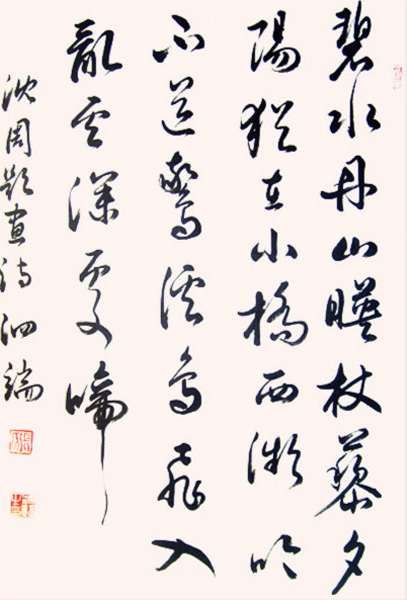 碧水丹山暎杖藜夕
陽猶在小橋西微吟
不道驚溪鳥飛入
亂雲深處啼
沈周題畫詩泗端